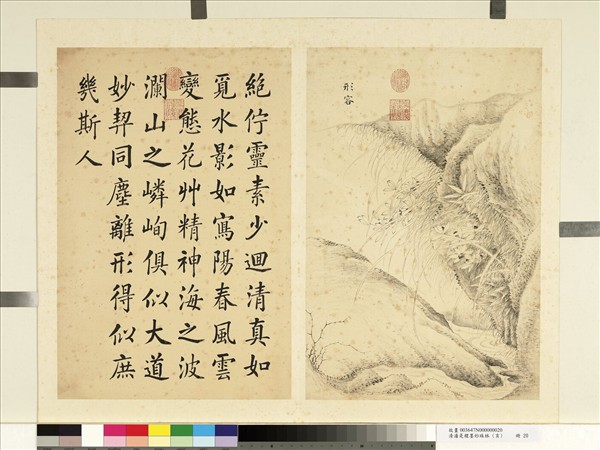 形容
絕佇靈素少迴清真如
覓水影如寫陽春風雲
變態花艸精神海之波
瀾山之嶙峋俱似大道
妙契同塵離形得似庶
幾斯人
故畫 0036475N000000020
墨妙珠林 20